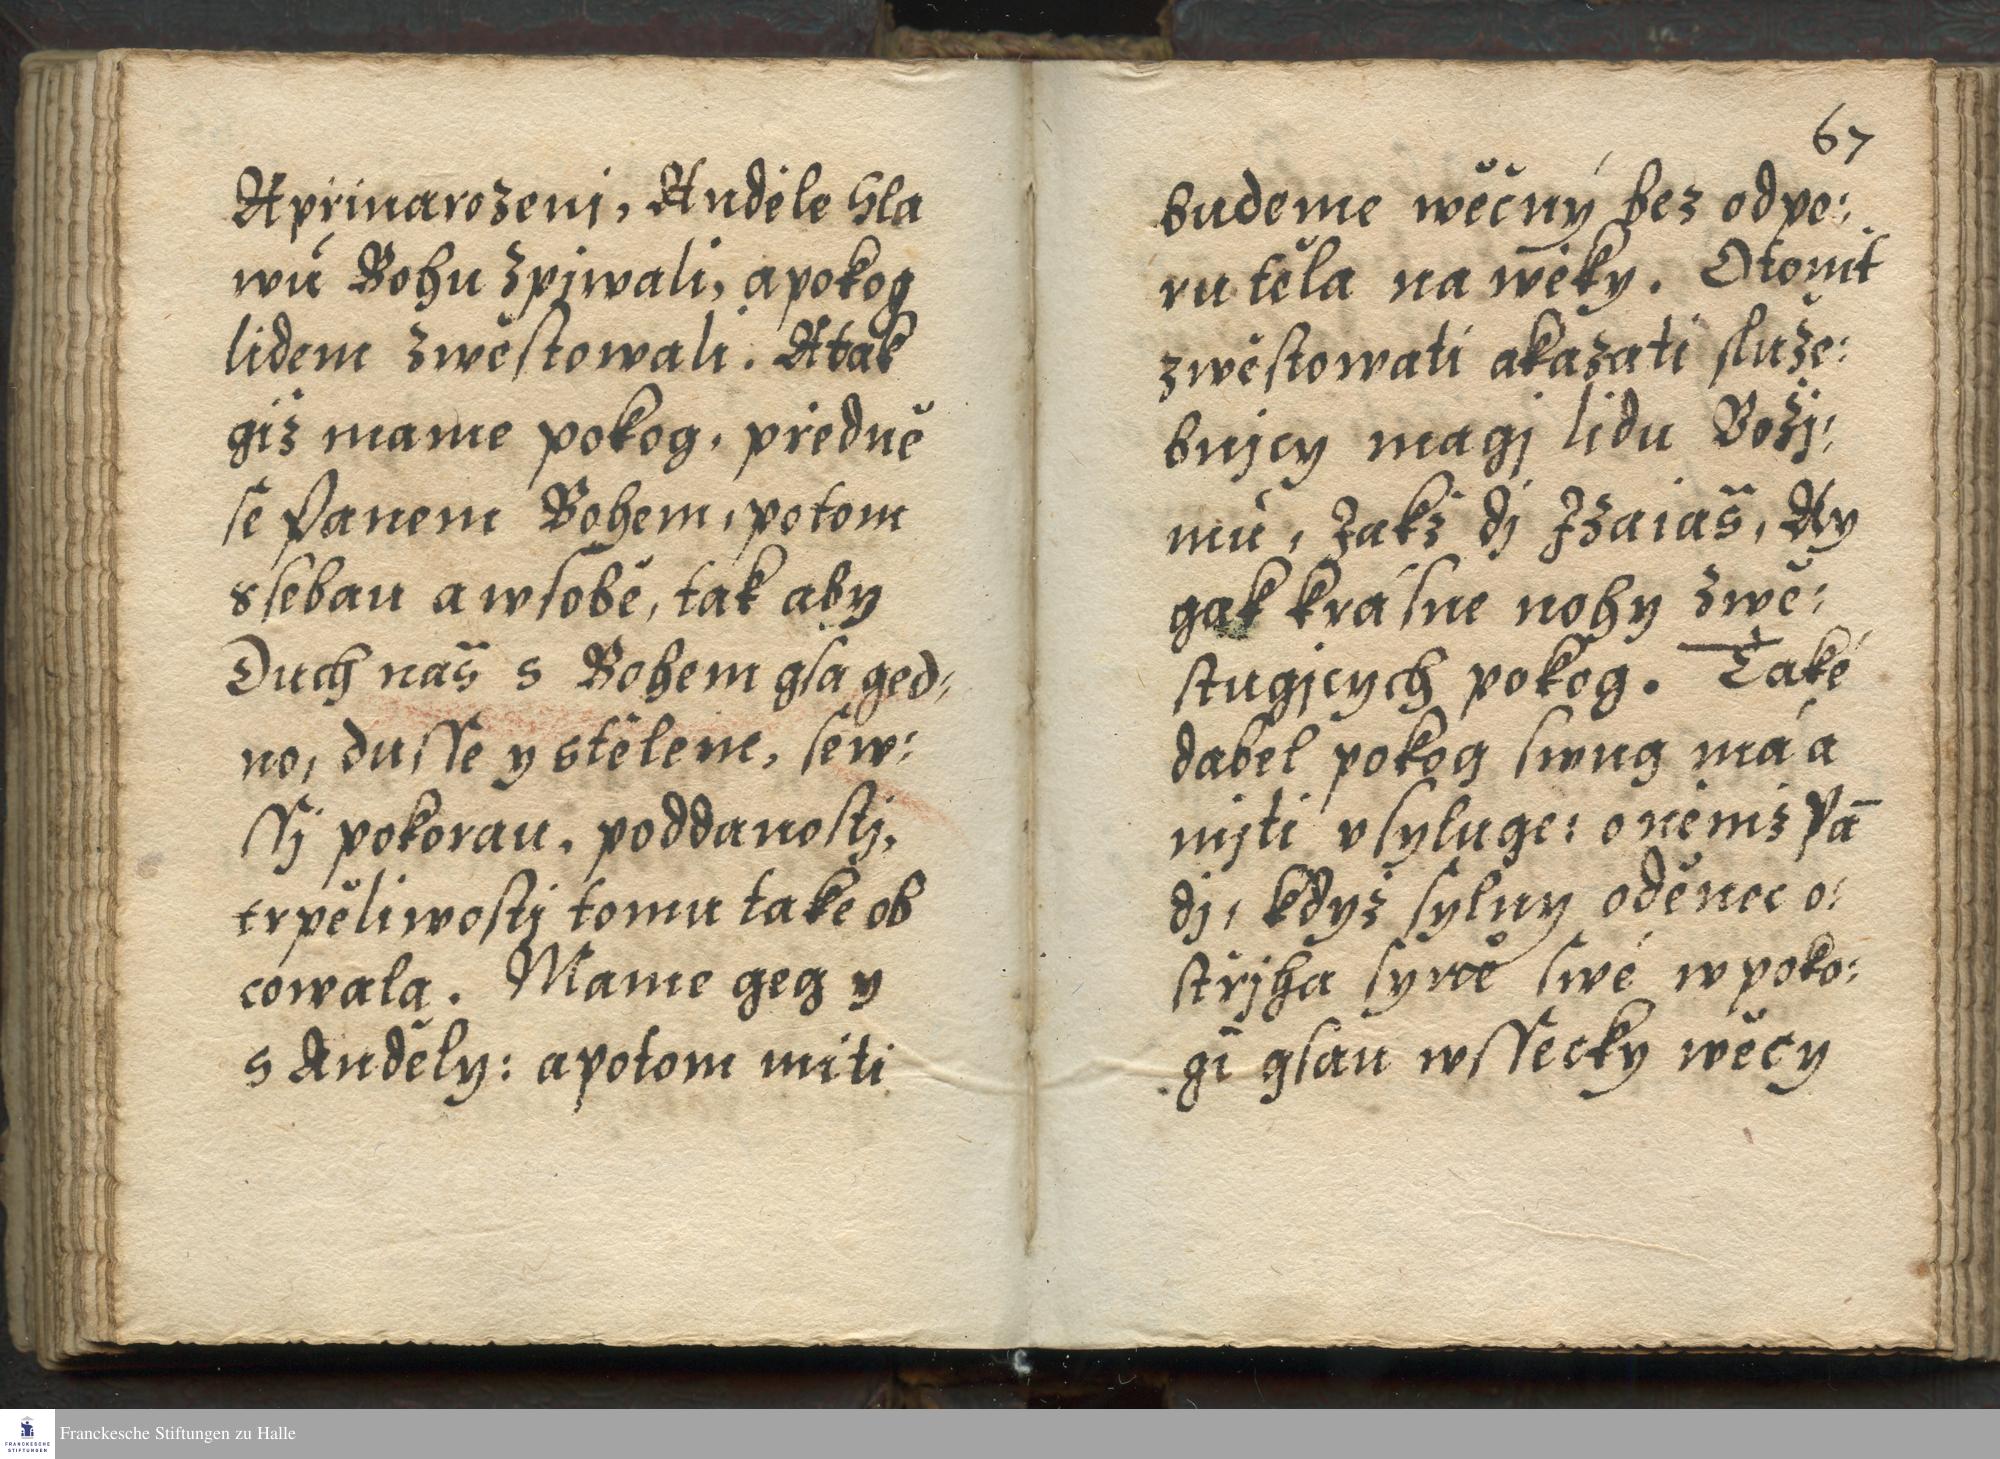 A přinarozenj, Anděle hla
wú Bohu zpjwali, a pokog
lidem zwěstowali. A tak
giž mame pokog, předně
se Panem Bohem, potom
s sebau a w sobě, tak aby
Duch náš s Bohem gsa ged:
no, dusse y s tělem, se w:
ssj pokorau, poddanostj,
trpěliwostj tomu také ob
cowala. Mame geg y
s Anděly: a potom miti
67
budeme wěčný bez odpo:
ru těla na wěky. O tomť
zwěstowati a kazati služe:
bnjcy magj lidu Božj:
mu, Jakž dj Jzaiáš, Ay
gak krásne nohy zwě:
stugjcych pokog. Také
dabel pokog swug má a
mjti vsyluge: o němž Pā
dj, když sylny oděnec o:
střjha syně swé w poko:
gi gsau wssecky wěcy
Franckesche Stiftungen zu Halle
FRANCKESCHE
STIFTUNGEN